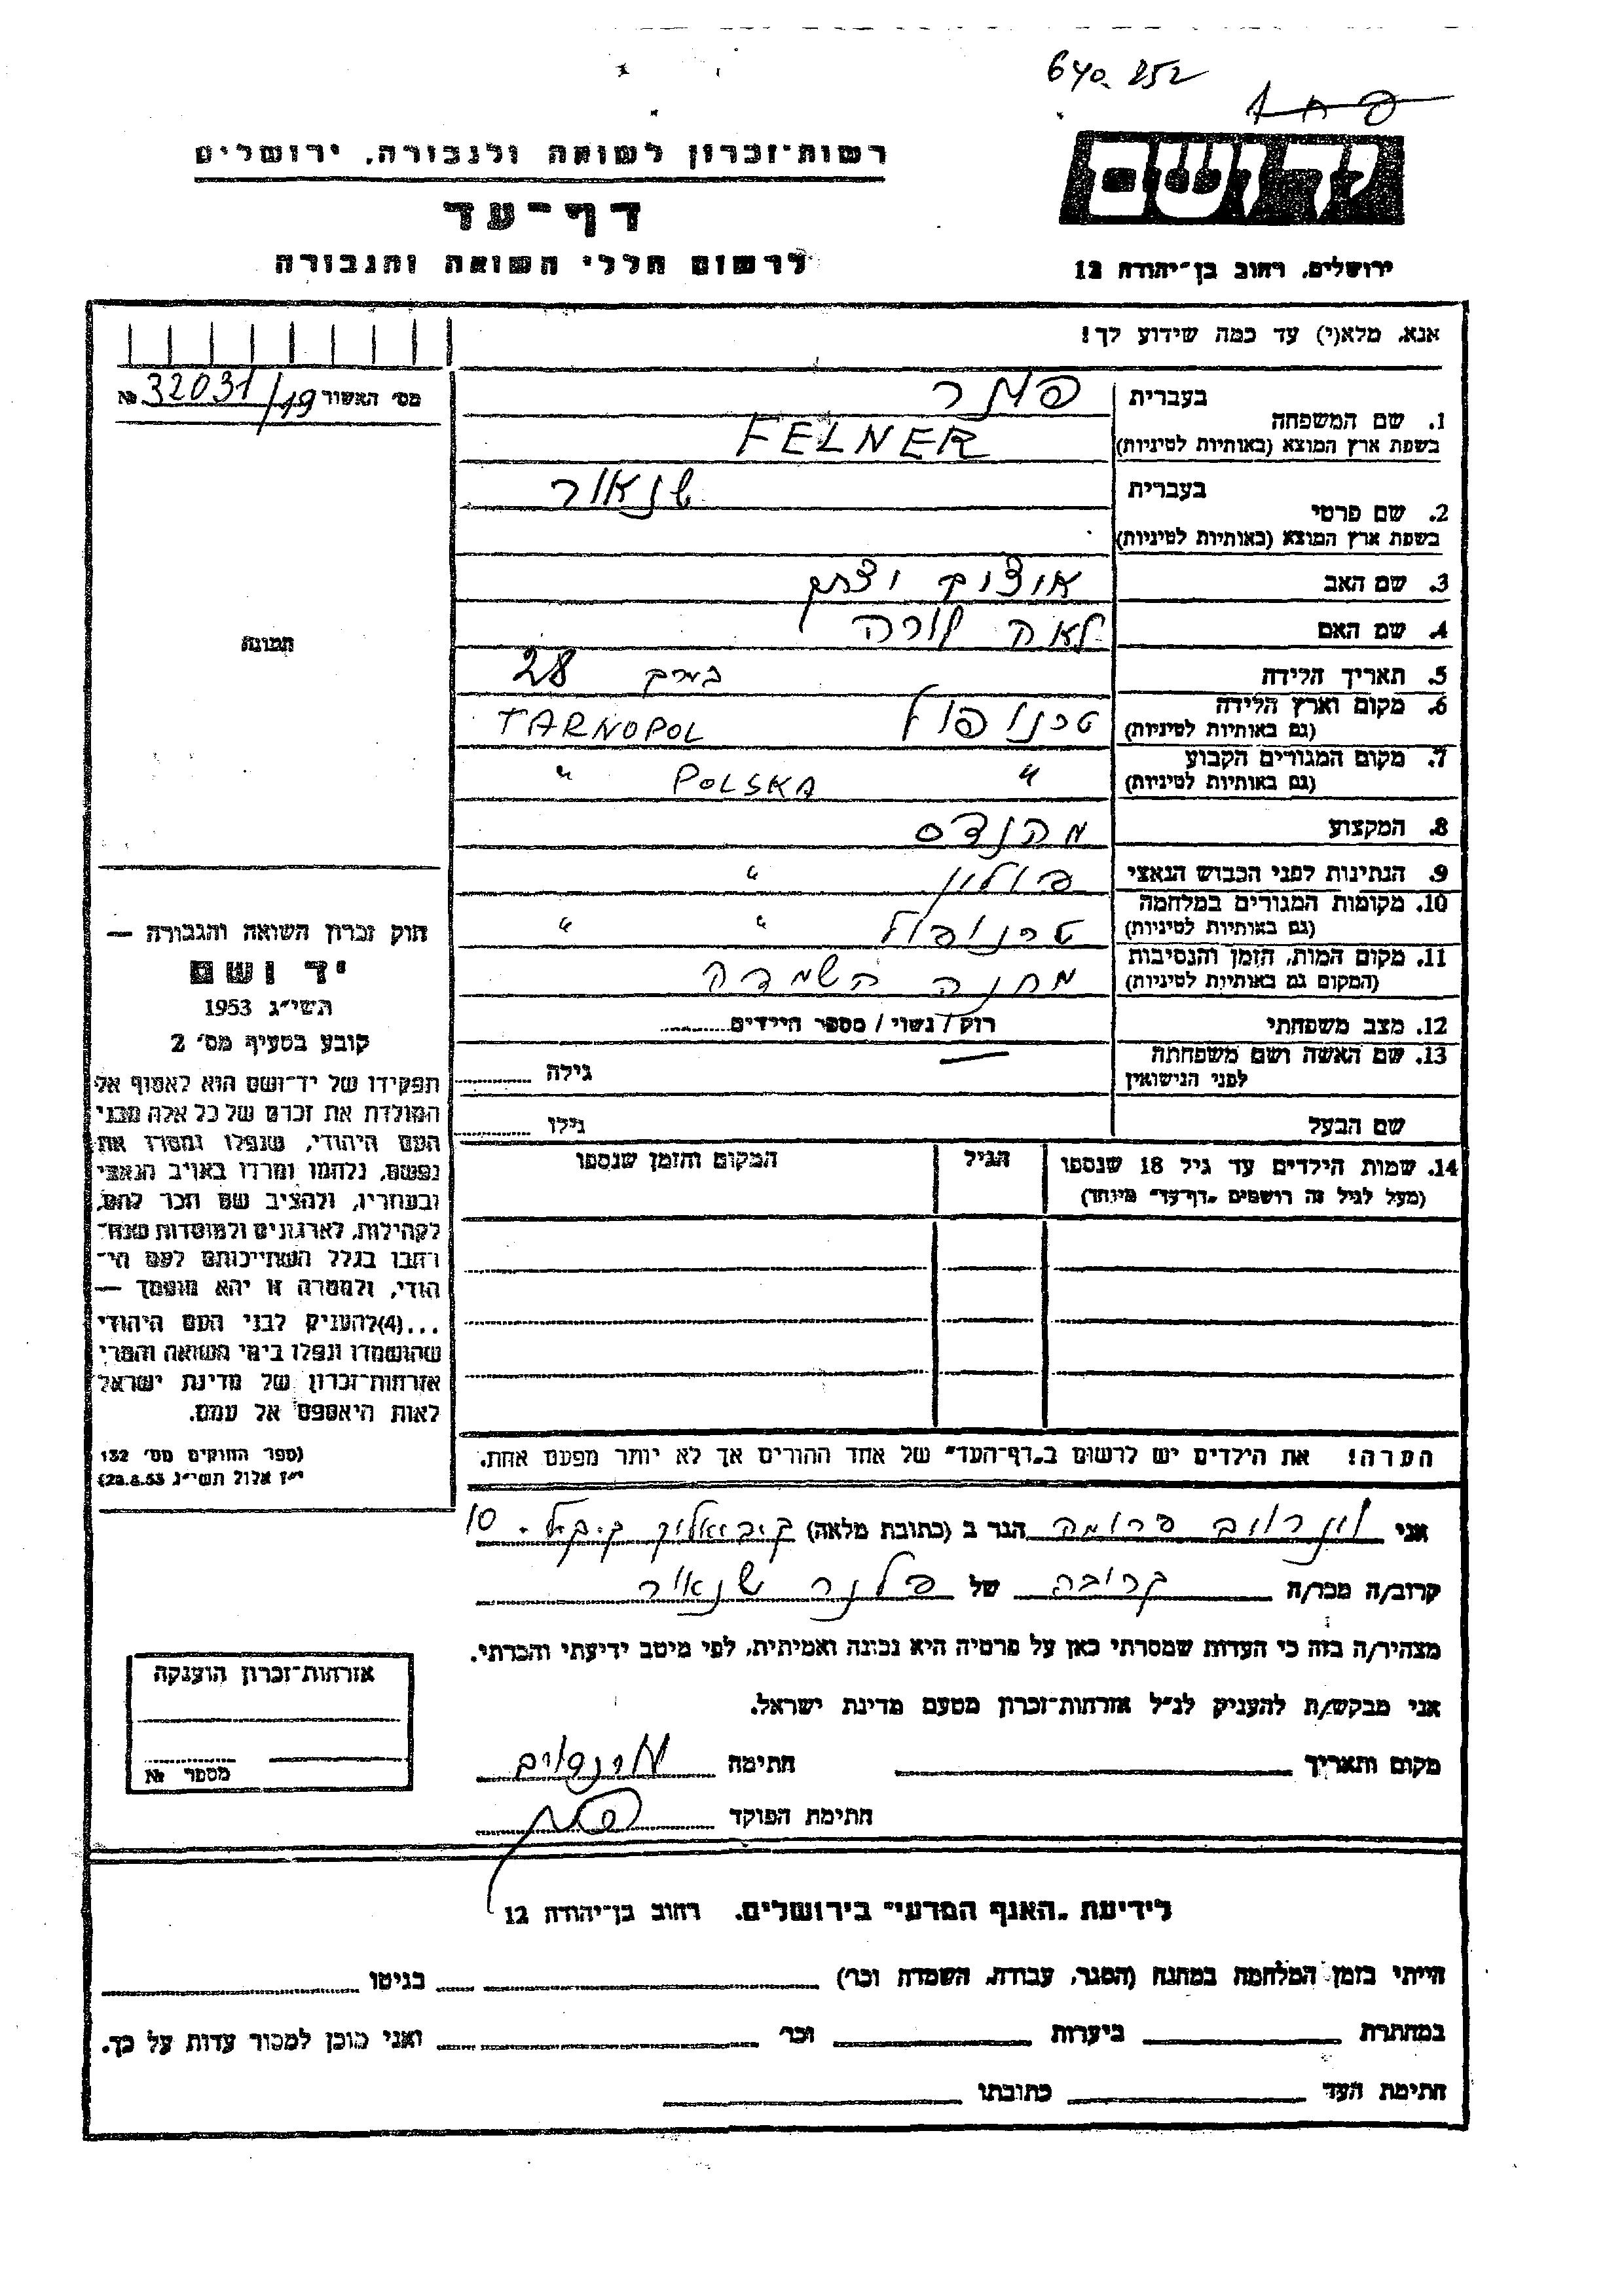 640.252
יד ושם
רשות־זכרון לשואה ולגבורה, ירושלים
דף־עד
לרשום חללי השואה והגבורה
ירושלים, רחוב בן־יהודה 12
אנא, מלא(י) עד כמה שידוע לך!
מס׳ האשור 32031/19 №
תמונה
1. שם המשפחה
בעברית פלנר
בשפת ארץ המוצא (באותיות לטיניות) FELNER
2. שם פרטי
בעברית שנאור
בשפת ארץ המוצא (באותיות לטיניות)
3. שם האב יצחק
4. שם האם לאה
5. תאריך הלידה 28
6. מקום וארץ הלידה
(גם באותיות לטיניות) טרנופול TARNOPOL
7. מקום המגורים הקבוע
(גם באותיות לטיניות) " POLSKA "
8. המקצוע מהנדס
9. הנתינות לפני הכבוש הנאצי פולין "
10. מקומות המגורים במלחמה
(גם באותיות לטיניות) טרנופול " "
11. מקום המות, הזמן והנסיבות
(המקום גם באותיות לטיניות) מחנה השמדה
12. מצב משפחתי רוק / נשוי / מספר הילדים
13. שם האשה ושם משפחתה
לפני הנישואין גילה
שם הבעל גילו
14. שמות הילדים עד גיל 18 שנספו הגיל המקום והזמן שנספו
(מעל לגיל זה רושמים „דף־עד״ מיוחד)
הערה! את הילדים יש לרשום ב„דף־העד״ של אחד ההורים אך לא יותר מפעם אחת.
חוק זכרון השואה והגבורה —
יד ושם
תשי״ג 1953
קובע בסעיף מס׳ 2
תפקידו של יד־ושם הוא לאסוף אל
המולדת את זכרם של כל אלה מבני
העם היהודי, שנפלו ומסרו את
נפשם, נלחמו ומרדו באויב הנאצי
ובעוזריו, ולהציב שם וזכר להם,
לקהילות, לארגונים ולמוסדות שנח־
רבו בגלל השתייכותם לעם הי־
הודי, ולמטרה זו יהא מוסמך —
...(4) להעניק לבני העם היהודי
שהושמדו ונפלו בימי השואה והמרי
אזרחות־זכרון של מדינת ישראל
לאות היאספם אל עמם.
(ספר החוקים מס׳ 132
י״ז אלול תשי״ג 28.8.53)
אני פרומה הגר ב (כתובת מלאה) ק. ביאליק 10
קרוב/ה מכר/ה קרובה של פלנר שנאור
מצהיר/ה בזה כי העדות שמסרתי כאן על פרטיה היא נכונה ואמיתית, לפי מיטב ידיעתי והכרתי.
אני מבקש/ת להעניק לנ״ל אזרחות־זכרון מטעם מדינת ישראל.
מקום ותאריך חתימה
חתימת הפוקד
אזרחות־זכרון הוענקה
מספר №
לידיעת „האגף המדעי״ בירושלים, רחוב בן־יהודה 12
הייתי בזמן המלחמה במחנה (הסגר, עבודה, השמדה וכו׳) בגיטו
במחתרת ביערות וכו׳ ואני מוכן למסור עדות על כך.
חתימת העד כתובתו